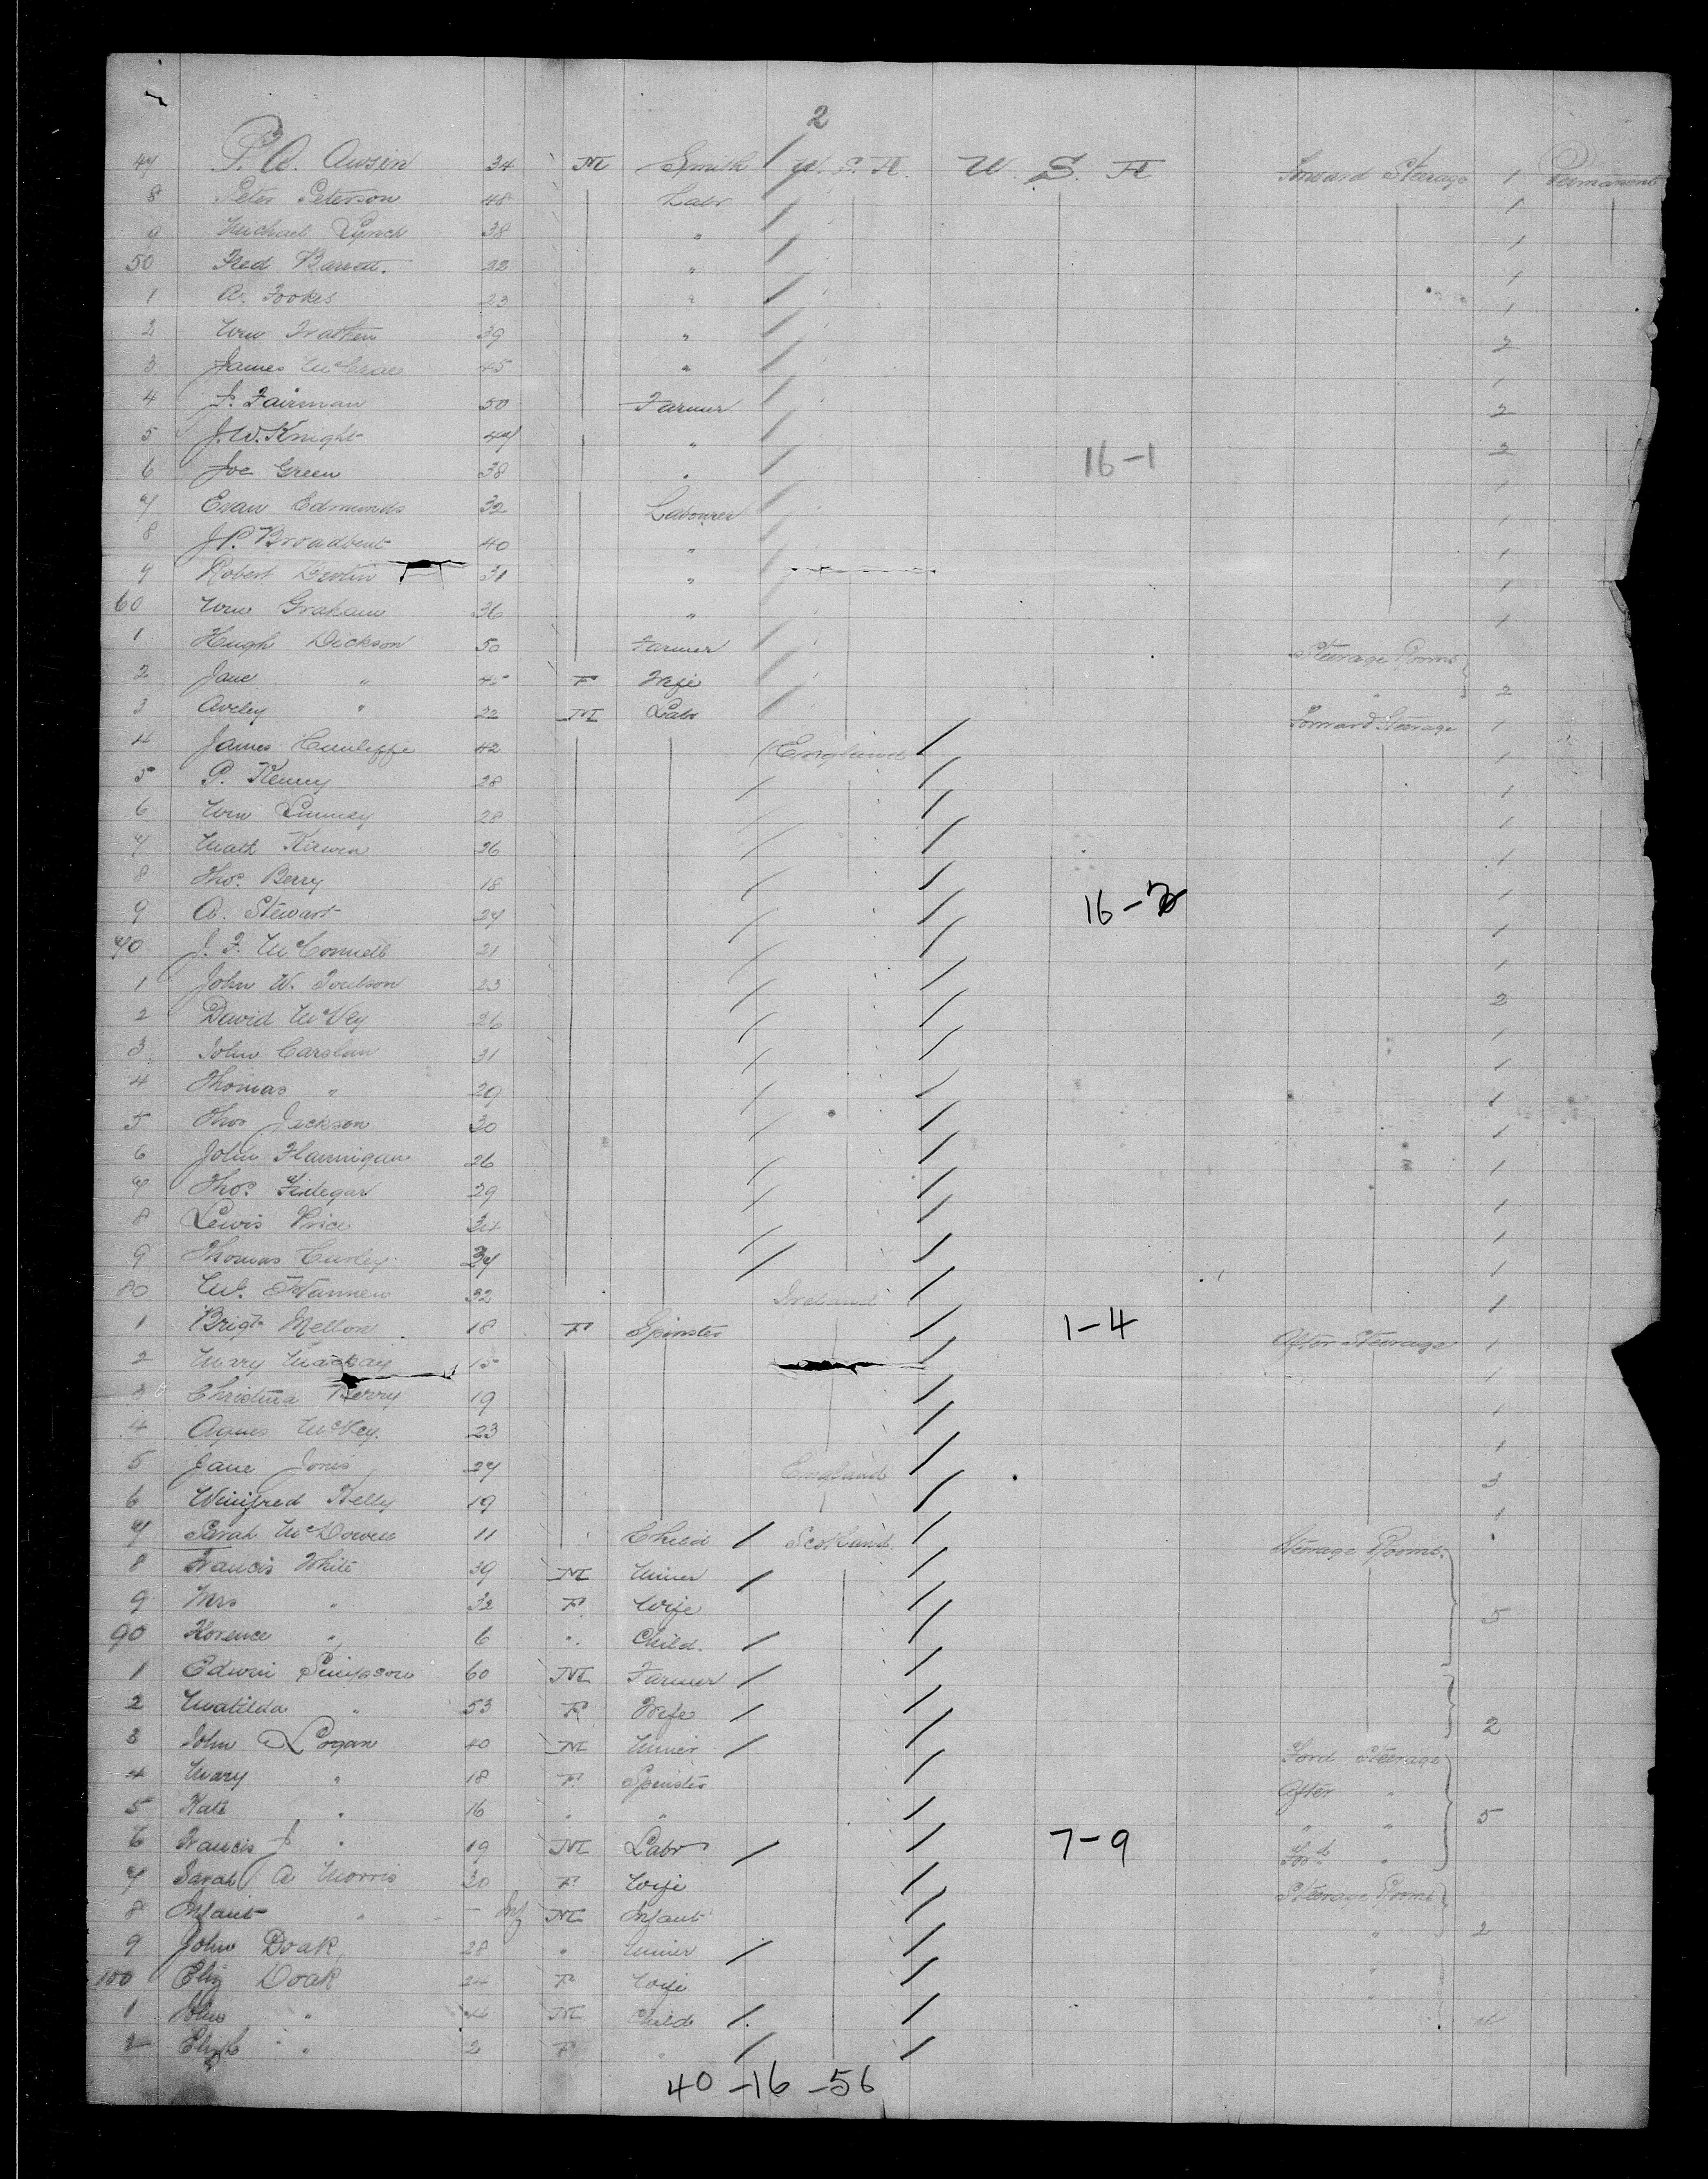 2
47 P. A. 34 M Smith U.S.A. U. S. A Forward Steerage 1 Permanent
8 Peter Peterson 48 Labr 1
9 Michael Lynch 38 " 1
50 Fred Barrett. 22 " 1
1 A. Fookes 23 " 1
2 Wm 39 " 2
3 James McCrae 45 " 1
4 J. Fairman 50 Farmer 2
5 J. W. Knight 47 " 2
6 Joe Green 38 " 16-1 1
7 Evan Edmunds 32 Labourer 1
8 J. P. Broadbent 40 " 1
9 Robert 31 " 1
60 Wm Graham 36 " 1
1 Hugh Dickson 50 Farmer Steerage Rooms
2 Jane " 45 F Wife " 2
3 " 22 M Labr Forward Steerage 1
4 James Cunliffe 42 England 1
5 P. Kenny 28 1
6 Wm 28 1
7 Math Kirwen 26 1
8 Thos. Berry 18 1
9 A. Stewart 27 16- 1
70 J. F. McConnell 21 1
1 John W. 23 2
2 David McVey 26 1
3 John 31 1
4 Thomas " 29 1
5 Thos Jackson 30 1
6 John Flannigan 26 1
7 Thos. 29 1
8 Lewis Price 34 1
9 Thomas Curley 37 1
80 32 Ireland 1
1 Brigt Mellon 18 F Spinster 1-4 After Steerage 1
2 Mary Mackay 18 1
3 Christina Berry 19 1
4 Agnes McVey. 23 1
5 Jane Jones 27 England 3
6 Winifred Kelly 19 1
7 Sarah McDowell 11 Child Scotland. Steerage Rooms.
8 Francis White 39 M Miner
9 Mrs " 32 F Wife 5
90 Florence " 6 " Child.
1 Edwin Simpson 60 M Farmer
2 Matilda " 53 F Wife 2
3 John Logan 40 M Miner Ford Steerage
4 Mary " 18 F. Spinster After "
5 Kate " 16 " " " " 5
6 Francis J " 19 M Labr 7-9 Ford "
7 Sarah A Morris 30 F Wife Steerage Rooms
8 Infant " - Inf M Infant " 2
9 John Doak 28 " Miner "
100 Eliz Doak 24 F Wife "
1 John " 4 M Child
2 Elizth " 2 F "
40-16-56